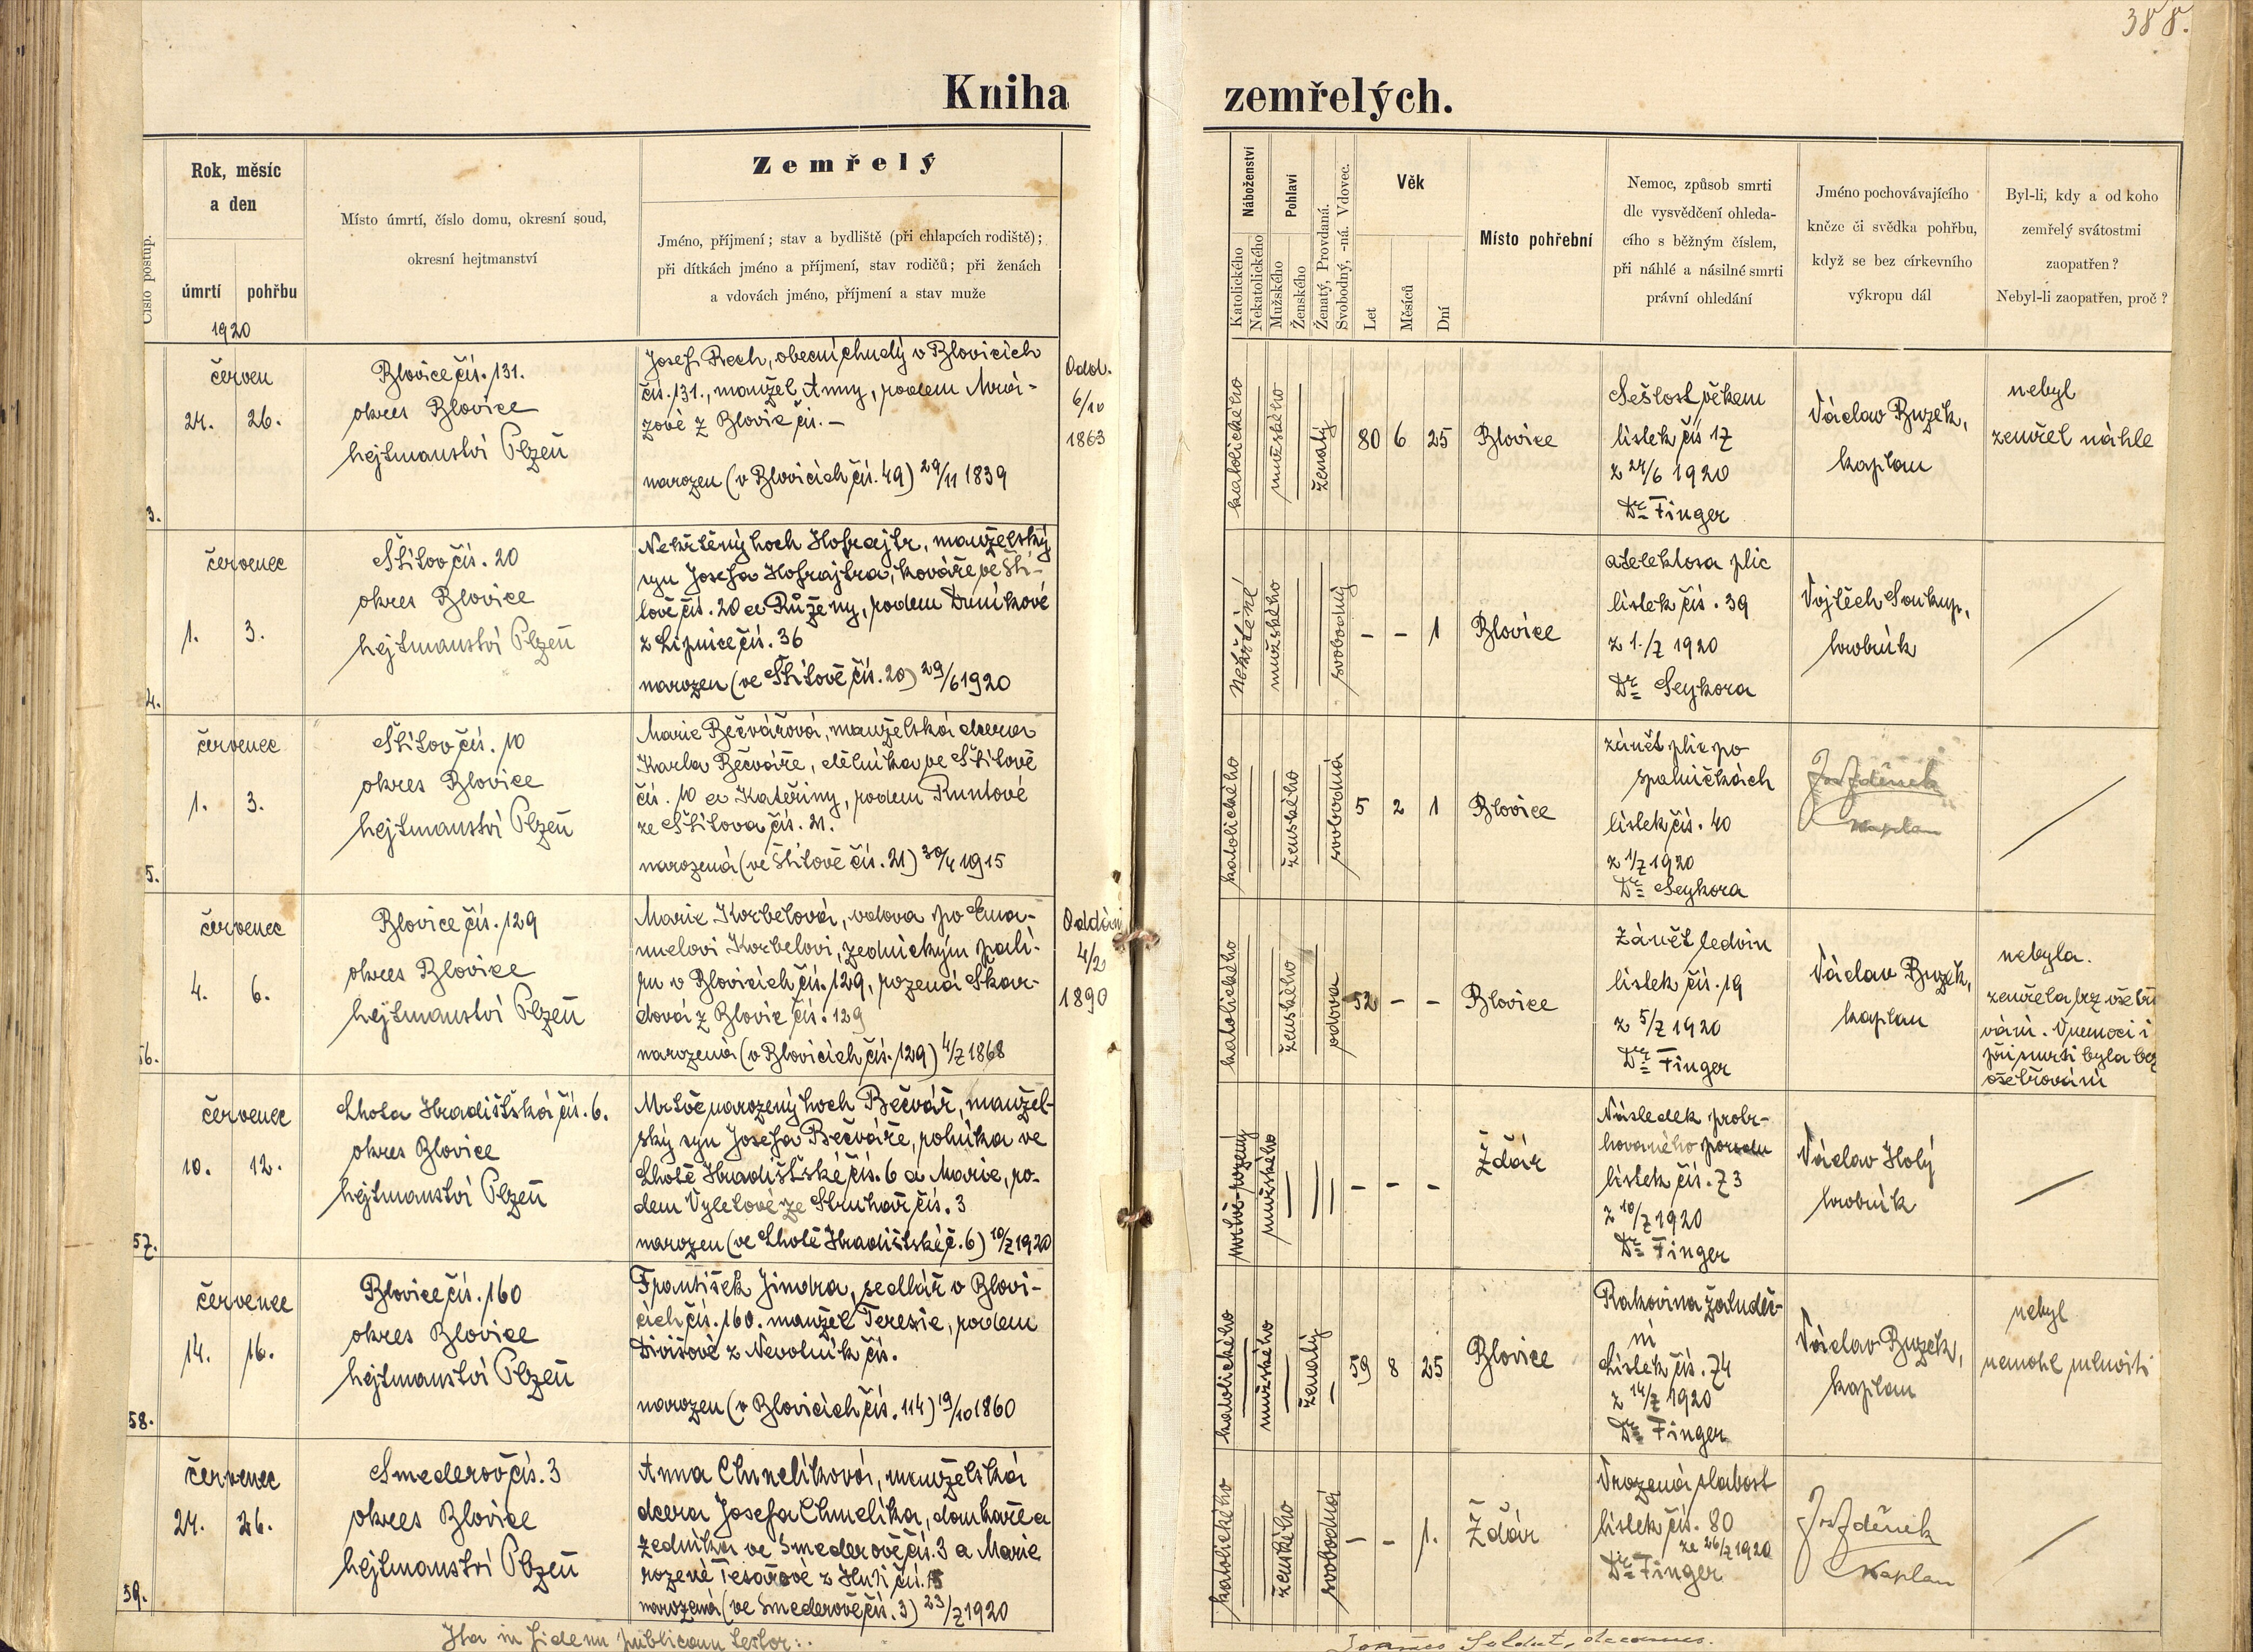 388.
Kniha zemřelých.
Číslo postup.
Rok, měsíc
a den
úmrtí pohřbu
1920
Místo úmrtí, číslo domu, okresní soud,
okresní hejtmanství
Zemřelý
Jméno, příjmení; stav a bydliště (při chlapcích rodiště);
při dítkách jméno a příjmení, stav rodičů; při ženách
a vdovách jméno, příjmení a stav muže
Náboženství
Katolického
Nekatolického
Pohlaví
Mužského
Ženského
Ženatý, Provdaná.
Svobodný, -ná. Vdovec.
Věk
Let
Měsíců
Dní
Místo pohřební
Nemoc, způsob smrti
dle vysvědčení ohleda-
cího s běžným číslem,
při náhlé a násilné smrti
právní ohledání
Jméno pochovávajícího
kněze či svědka pohřbu,
když se bez církevního
výkropu dál
Byl-li, kdy a od koho
zemřelý svátostmi
zaopatřen?
Nebyl-li zaopatřen, proč?
3.
červen
24. 26.
Blovice čís. 131.
okres Blovice
hejtmanství Plzeň
Josef Rech, obecní chudý v Blovicích
čís. 131., manžel Anny, rodem Mrá-
zové z Blovic čís. –
narozen (v Blovicích čís. 49) 29/11 1839
Odd.
6/10
1863
katolického
mužského
ženatý
80 6 25
Blovice
Sešlost věkem
lístek čís 17
z 24/6 1920
Dr Finger
Václav Buzek,
kaplan
nebyl
zemřel náhle
4.
červenec
1. 3.
Štítov čís. 20
okres Blovice
hejtmanství Plzeň
Nekřtěný hoch Hofrajtr, manželský
syn Josefa Hofrajtra, kováře ve Ští-
tově čís. 20 a Růženy, rodem Duníkové
z Lipnice čís. 36
narozen (ve Štítově čís. 20) 29/6 1920
nekřtěné
mužského
svobodný
– – 1
Blovice
atelektosa plic
lístek čís. 39
z 1./7 1920
Dr Seykora
Vojtěch Soukup,
hrobník
5.
červenec
1. 3.
Štítov čís. 10
okres Blovice
hejtmanství Plzeň
Marie Bečvářová, manželská dcera
Karla Bečváře, dělníka ve Štítově
čís. 10 a Kateřiny, rodem Runtové
ze Štítova čís. 21.
narozená (ve Štítově čís. 21) 30/4 1915
katolického
ženského
svobodná
5 2 1
Blovice
zánět plic po
spalničkách
lístek čís. 40
z 1/7 1920
Dr Seykora
Jos Zděnek
Kaplan
56.
červenec
4. 6.
Blovice čís. 129
okres Blovice
hejtmanství Plzeň
Marie Korbelová, vdova po Ema-
nuelovi Korbelovi, zednickým palí-
ru v Blovicích čís. 129, rozená Skar-
dová z Blovic čís. 129
narozená (v Blovicích čís. 129) 4/7 1868
Oddáni
4/2
1890
katolického
ženského
vdova
52 – –
Blovice
Zánět ledvin
lístek čís. 19
z 5/7 1920
Dr Finger
Václav Buzek,
kaplan
nebyla.
zemřela bez ošetřo
vání. V nemoci i
při smrti byla bez
ošetřování
57.
červenec
10. 12.
Lhota Hradišťská čís. 6.
okres Blovice
hejtmanství Plzeň
Mrtvě narozený hoch Bečvář, manžel-
ský syn Josefa Bečváře, rolníka ve
Lhotě Hradišťské čís. 6 a Marie, ro-
dem Vyletové ze Struhař čís. 3
narozen (ve Lhotě Hradišťské č. 6) 10/7 1920
mrtvě-rozený
mužského
– – –
Ždár
Následek protr-
hovaného porodu
lístek čís. 73
z 10/7 1920
Dr Finger
Václav Holý
hrobník
58.
červenec
14. 16.
Blovice čís. 160
okres Blovice
hejtmanství Plzeň
František Jindra, sedlář v Blovi-
cích čís. 160. manžel Teresie, rodem
Divišové z Nevolník čís.
narozen (v Blovicích čís. 114) 19/10 1860
katolického
mužského
ženatý
59 8 25
Blovice
Rakovina žaludeč-
ní
Lístek čís. 74
z 14/7 1920
Dr Finger
Václav Buzek,
kaplan
nebyl
nemohl mluviti
59.
červenec
24. 26.
Smederov čís. 3
okres Blovice
hejtmanství Plzeň
Anna Chmelíková, manželská
dcera Josefa Chmelíka, domkaře a
zedníka ve Smederově čís. 3 a Marie
rozené Tesařové z Huti čís. 15
narozená (ve Smederově čís. 3) 23/7 1920
katolického
ženského
svobodná
– – 1.
Ždár
Vrozená slabost
lístek čís. 80
ze 26/7 1920
Dr Finger
Jos Zděnek
Kaplan
Ita in fidem publicam testor:.
Joannes Soldát, decanus.